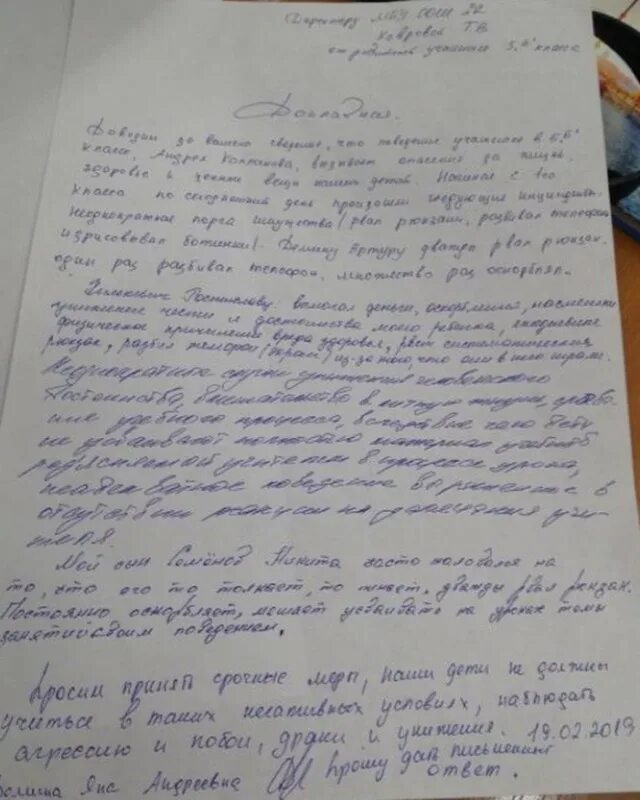 Директору МБУ СОШ 22
Ковровой Т.В
от родителей учащихся 5 "Б" класса
Докладная.
Доводим до вашего сведения, что поведение учащегося в 5 "Б"
классе, Андрея Колпакова, вызывает опасения за жизнь,
здоровье и ценные вещи наших детей. Начиная с 1го
класса по сегодняшний день произошли следующие инциденты:
Неоднократная порча имущества (рвал рюкзаки, разбивал телефон,
изрисовывал ботинки). Артуру дважды рвал рюкзак,
один раз разбивал телефон, множество раз оскорблял.
Ростиславу: вымогал деньги, оскорблял, насмешки
унижение чести и достоинства моего ребенка, ежедневное
физическое причинение вреда здоровья, рвет систематически
рюкзак, разбил телефон (экран), из-за того, что они в него играли.
Неоднократные случаи унижения человеческого
достоинства, вмешательство в личную жизнь,
учебного процесса, вследствие чего дети
не усваивают полностью материал учебный
разъясняемый учителем в процессе урока,
неадекватное поведение выраженное в
отсутствии реакции на замечания учи-
теля.
Мой сын Семёнов Никита часто жаловался на
то, что его то толкает, то пинает, дважды рвал рюкзак.
Постоянно оскорбляет, мешает усваивать на уроках темы
занятий своим поведением.
Просим принять срочные меры, наши дети не должны
учиться в таких негативных условиях, наблюдать
агрессию и побои, драки и унижения. 19.02.2019
Яна Андреевна Прошу дать письменный
ответ.